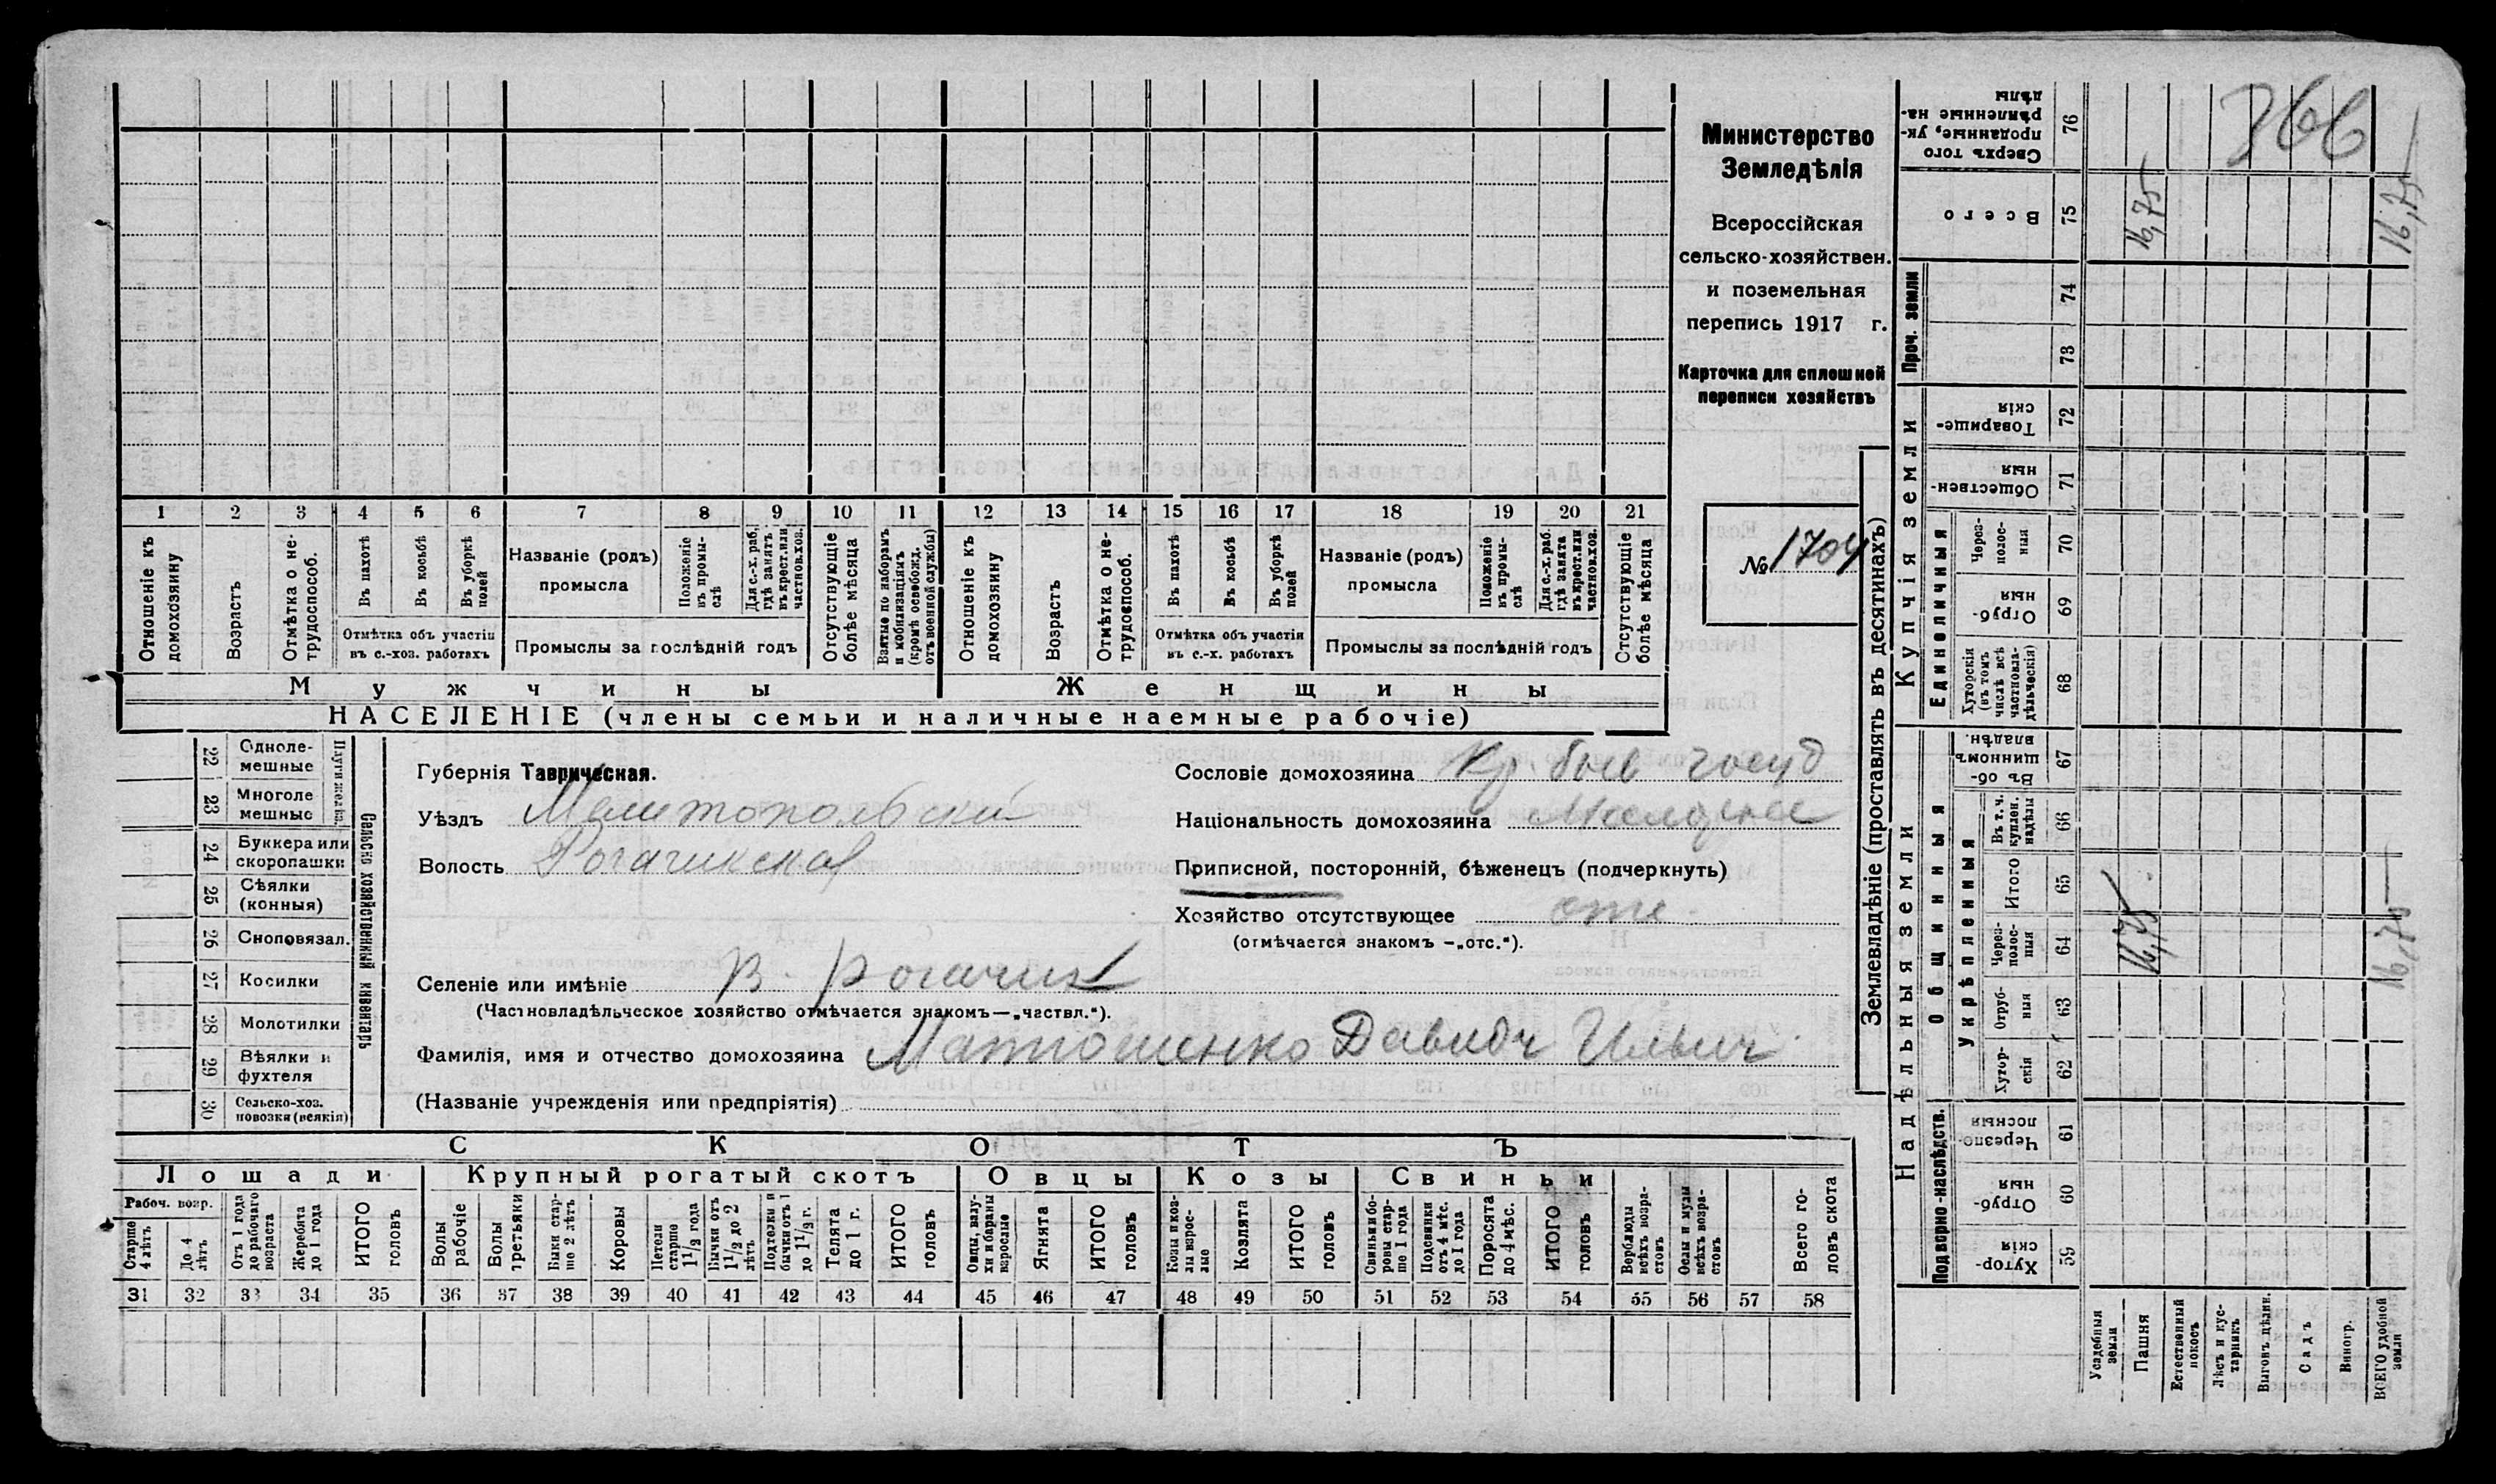 Министерство
Земледѣлія
Всероссійская
сельско-хозяйствен.
и поземельная
перепись 1917 г.
Карточка для сплошной
переписи хозяйствъ
№ 1704
366
1 2 3 4 5 6 7 8 9 10 11 12 13 14 15 16 17 18 19 20 21
Отношеніе къ домохозяину
Возрастъ
Отмѣтка о не-трудоспособ.
Въ пахотѣ
Въ косьбѣ
Въ уборкѣ полей
Отмѣтка объ участіи въ с.-хоз. работахъ
Названіе (родъ) промысла
Положеніе въ промы-слѣ
Для с.-х. раб., гдѣ занятъ въ крест. или частнов. хоз.
Промыслы за послѣдній годъ
Отсутствующіе болѣе мѣсяца
Взятые по наборамъ и мобилизаціямъ (кромѣ освобожд. отъ военной службы)
Отношеніе къ домохозяину
Возрастъ
Отмѣтка о не-трудоспособ.
Въ пахотѣ
Въ косьбѣ
Въ уборкѣ полей
Отмѣтка объ участіи въ с.-х. работахъ
Названіе (родъ) промысла
Положеніе въ промы-слѣ
Для с.-х. раб. гдѣ занята въ крест. или частнов. хоз.
Промыслы за послѣдній годъ
Отсутствующіе болѣе мѣсяца
Мужчины
Женщины
НАСЕЛЕНІЕ (члены семьи и наличные наемные рабочіе)
22 Одноле-мешные
23 Многоле мешные
Плуги желѣз.
24 Буккера или скоропашки
25 Сѣялки (конныя)
26 Сноповязал.
27 Косилки
28 Молотилки
29 Вѣялки и фухтеля
30 Сельско-хоз. повозки (всякія)
Сельско хозяйственный инвентарь
Губернія Таврическая.
Уѣздъ Мелитопольскій
Волость Рогачикская
Сословіе домохозяина Кр. быв госуд
Національность домохозяина
Приписной, посторонній, бѣженецъ (подчеркнуть)
Хозяйство отсутствующее отс.
(отмѣчается знакомъ —„отс.“).
Селеніе или имѣніе В. Рогачик
(Частновладѣльческое хозяйство отмѣчается знакомъ—„частвл.“).
Фамилія, имя и отчество домохозяина Матюшенко Давидъ Ильич
(Названіе учрежденія или предпріятія)
СКОТЪ
Лошади
Крупный рогатый скотъ
Овцы
Козы
Свиньи
Рабоч. возр.
Старше 4 лѣтъ
До 4 лѣтъ
Отъ 1 года до рабочаго возраста
Жеребята до 1 года
ИТОГО головъ
Волы рабочіе
Волы третьяки
Быки стар-ше 2 лѣтъ
Коровы
Нетели старше 1 1/2 года
Бычки отъ 1 1/2 до 2 лѣтъ
Подтелки и бычки отъ 1 до 1 1/2 г.
Телята до 1 г.
ИТОГО головъ
Овцы, валу-хи и бараны взрослые
Ягнята
ИТОГО головъ
Козы и коз-лы взрос-лые
Козлята
ИТОГО головъ
Свиньи и бо-ровы стар-ше 1 года
Подсвинки отъ 4 мѣс. до 1 года
Поросята до 4 мѣс.
ИТОГО головъ
Верблюды всѣхъ возра-стовъ
Ослы и мулы всѣхъ возра-стовъ
Всего го-ловъ скота
31 32 33 34 35 36 37 38 39 40 41 42 43 44 45 46 47 48 49 50 51 52 53 54 55 56 57 58
Землевладѣніе (проставлять въ десятинахъ)
Купчія земли
Надѣльныя земли
Сверхъ того проданные, ук-рѣпленные на-дѣлы 76
Всего 75
16,75
16,75
Проч. земли
74
73
Товарище-скія 72
Обществен-ныя 71
Единоличныя
Через-полос-ныя 70
Отруб-ныя 69
Хуторскія (въ томъ числѣ всѣ частновла-дѣльческія) 68
Общинныя
Въ об-щинномъ владѣн. 67
Укрѣпленныя
Въ т. ч. куплен. надѣлы 66
Итого 65
Через-полос-ныя 64
16,75
16,75
Отруб-ныя 63
Хутор-скія 62
Подворно-наслѣдств.
Черезпо-лосныя 61
Отруб-ныя 60
Хутор-скія 59
Усадебныя земли
Пашня
Естественный покосъ
Лѣсъ и кус-тарникъ
Выгонъ цѣлин.
Садъ
Виногр.
ВСЕГО удобной земли